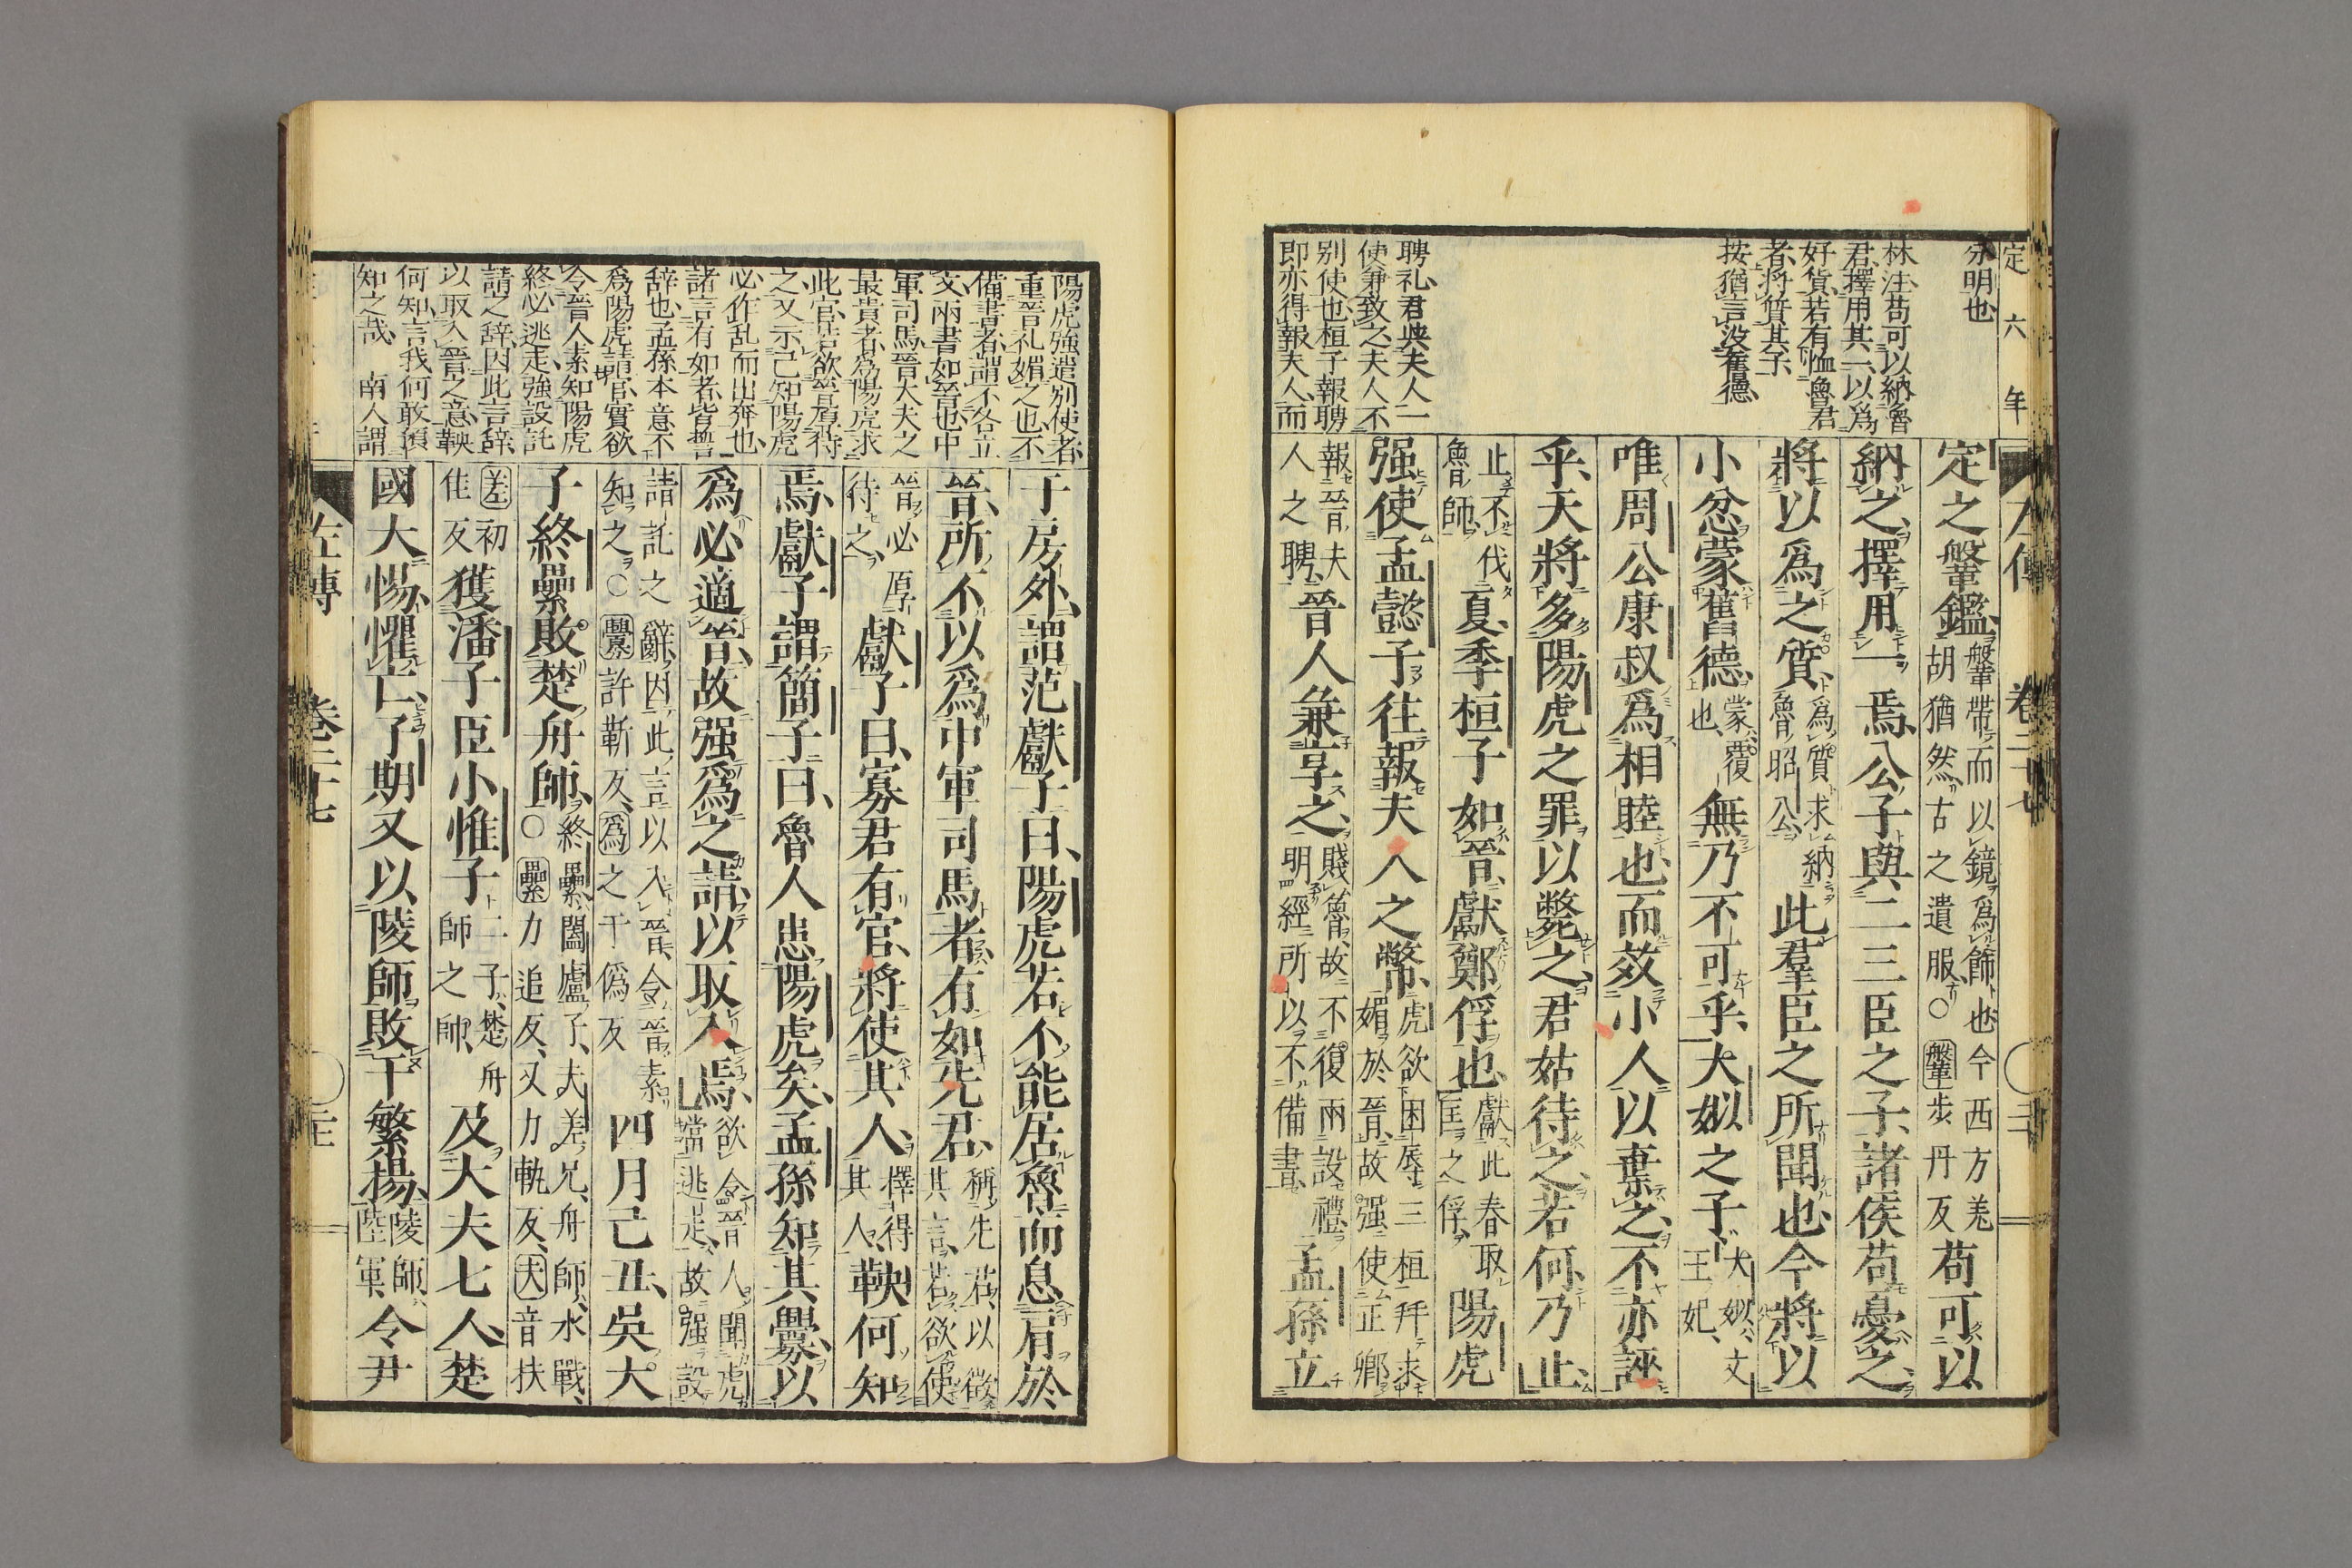 定六年
分明也
林注苟可以納魯
君擇用其一以爲
好貨若有恤魯君
者將質其子
按猶言没舊德
聘礼君與夫人一
使兼致之夫人不
別使也桓子報聘
即亦得報夫人而
定之鞶鑑鞶帶而以鏡爲飾也今西方羌胡猶然古之遺服○鞶步丹反苟可以
納之擇用一焉公子與二三臣之子諸侯苟憂之
將以爲之質爲質求納魯昭公此羣臣之所聞也今將以
小忿蒙舊德蒙覆也無乃不可乎大姒之子大姒文王妃
唯周公康叔爲相睦也而效小人以棄之不亦誣
乎天將多陽虎之罪以斃之君姑待之若何乃止
止不伐魯師夏季桓子如晉獻鄭俘也獻此春取匡之俘陽虎
强使孟懿子往報夫人之幣虎欲困辱三桓并求媚於晉故强使正卿
報晉夫人之聘晉人兼享之賤魯故不復兩設禮明經所以不備書孟孫立
左傳 卷二十七
陽虎強遣別使者
重晉礼媚之也不
備書者謂不各立
文兩書如晉也中
軍司馬晉大夫之
最貴者爲陽虎求
此官若欲晉厚待
之又示己知陽虎
必作乱而出奔也
諸言有如者皆誓
辞也孟孫本意不
爲陽虎請官實欲
令晉人素知陽虎
終必逃走強設託
請之辞因此言辞
以取入晉之意鞅
何知言我何敢預
知之哉 南人謂
于房外謂范獻子曰陽虎若不能居魯而息肩於
晉所不以爲中軍司馬者有如先君稱先君以徵其言若欲使
晉必厚待之獻子曰寡君有官將使其人擇得其人鞅何知
焉獻子謂簡子曰魯人患陽虎矣孟孫知其釁以
爲必適晉故强爲之請以取入焉欲令晉人聞虎當逃走故强設
請託之辭因此言以入晉令晉素知之○釁許靳反爲之于僞反四月己丑吳大
子終纍敗楚舟師終纍闔廬子夫差兄舟師水戰○纍力追反又力軌反大音扶
差初佳反獲潘子臣小惟子二子楚舟師之帥及大夫七人楚
國大惕懼亡子期又以陵師敗于繁揚陵師陸軍令尹
左傳 卷二十七